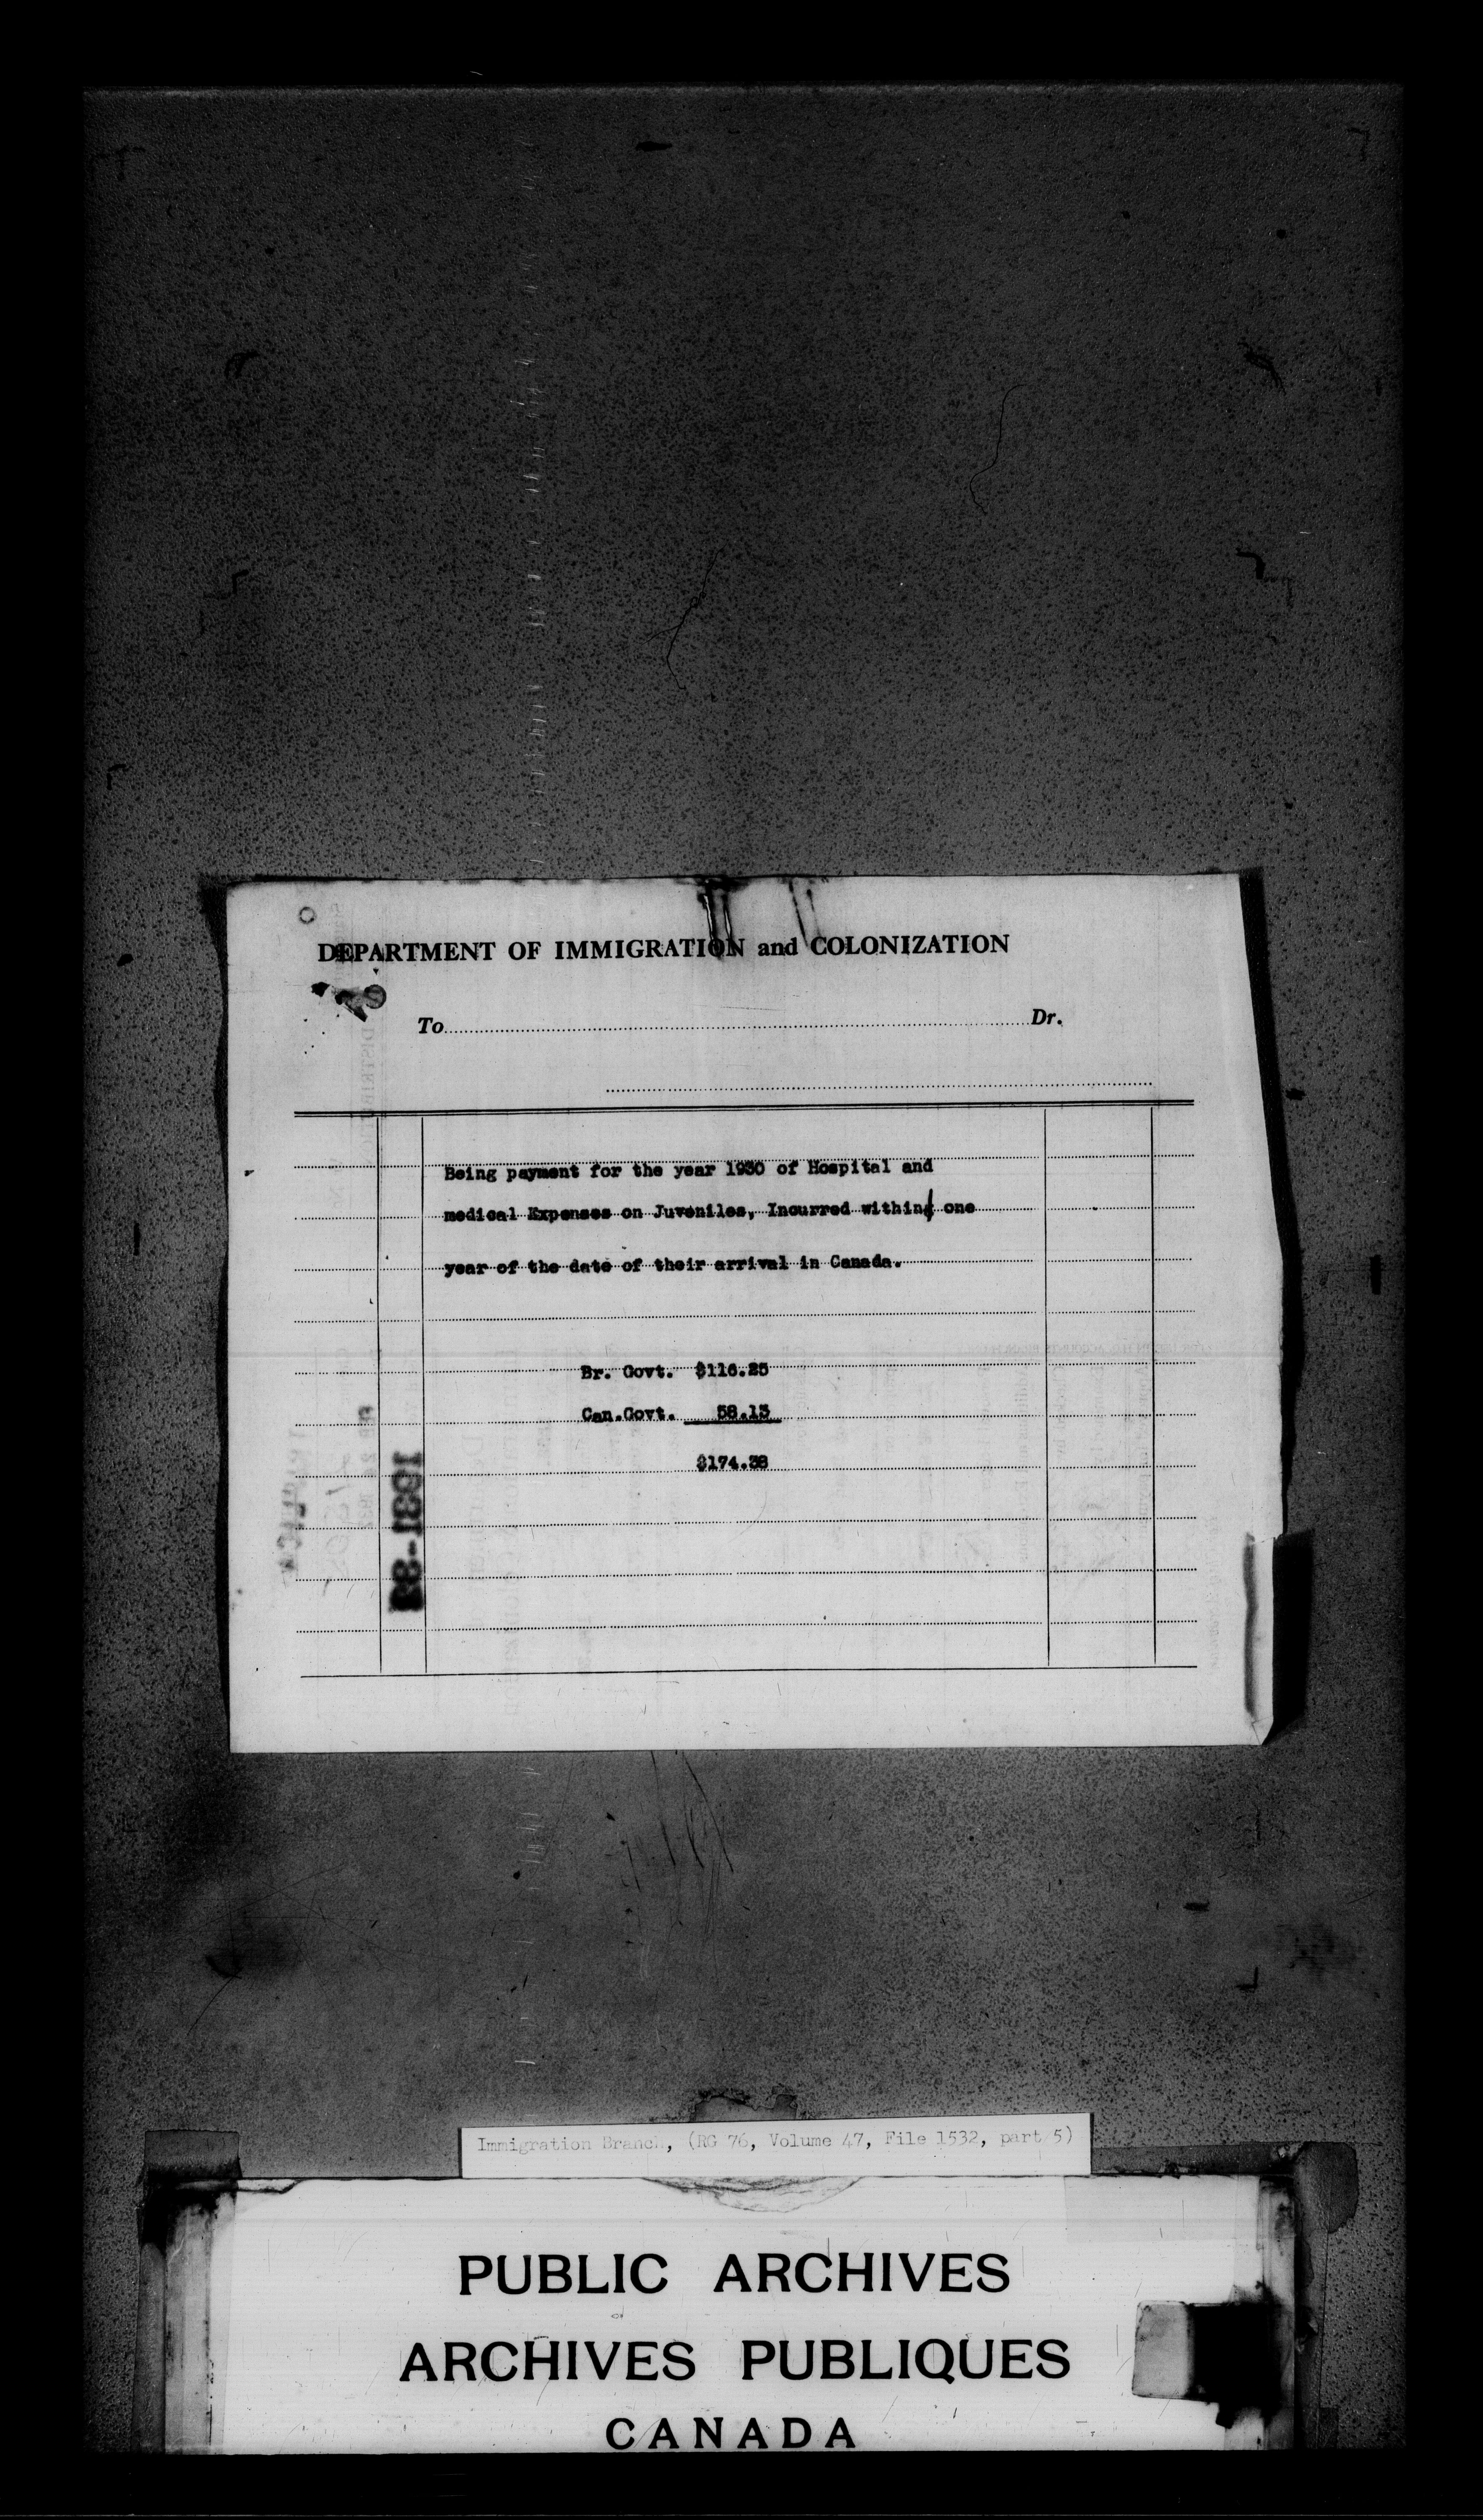 DEPARTMENT OF IMMIGRATION and COLONIZATION
To Dr.
Being payment for the year 1930 of Hospital and
medical Expenses on Juveniles, Incurred within one
year of the date of their arrival in Canada.
Br. Govt. $116.25
Can.Govt. 58.13
$174.38
1931-32
Immigration Branch, (RG 76, Volume 47, File 1532, part 5)
PUBLIC ARCHIVES
ARCHIVES PUBLIQUES
CANADA